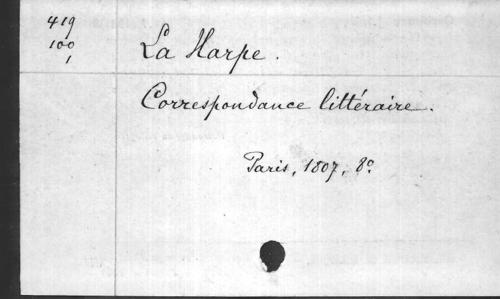 419
100
1
La Harpe.
Correspondance littéraire.
Paris, 1807, 8º.